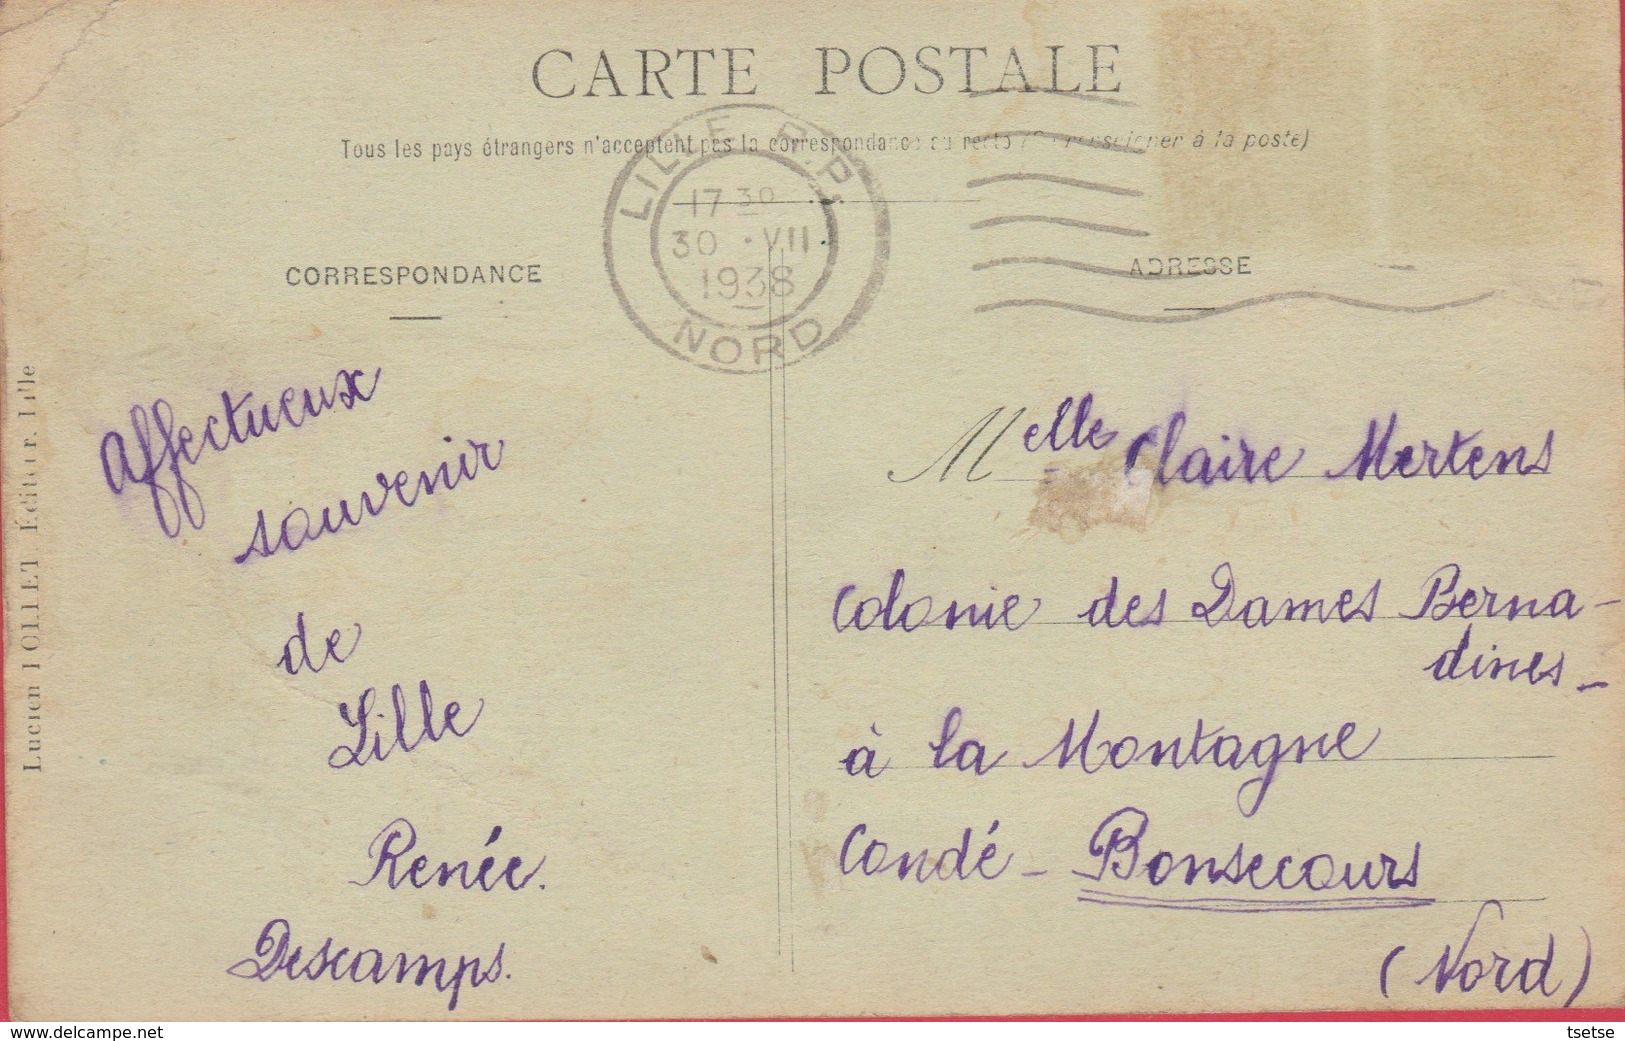 CARTE POSTALE
Tous les pays étrangers n'acceptent pas la correspondance au recto (Se renseigner à la poste)
LILLE R.P.
17 30
30 · VII
1938
NORD
CORRESPONDANCE
ADRESSE
Affectueux
souvenir
de
Lille
Renée.
Descamps.
Melle Claire Mertens
Colonie des Dames Berna-
dines -
à la Montagne
Condé - Bonsecours
(Nord)
Lucien JOLLET Éditeur. Lille
www.delcampe.net
tsetse